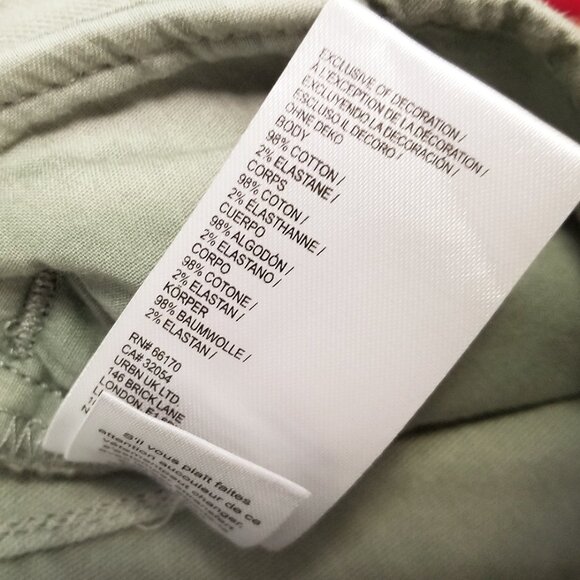 EXCLUSIVE OF DECORATION /
À L'EXCEPTION DE LA DÉCORATION /
EXCLUYENDO LA DECORACIÓN /
ESCLUSO IL DECORO /
OHNE DEKO
BODY
98% COTTON /
2% ELASTANE /
CORPS
98% COTON /
2% ÉLASTHANNE /
CUERPO
98% ALGODÓN /
2% ELASTANO /
CORPO
98% COTONE /
2% ELASTAN /
KÖRPER
98% BAUMWOLLE /
2% ELASTAN /
RN# 66170
CA# 32054
URBN UK LTD
146 BRICK LANE
LONDON,
S'il vous plaît faites
attention
aucouleur de ce
changer